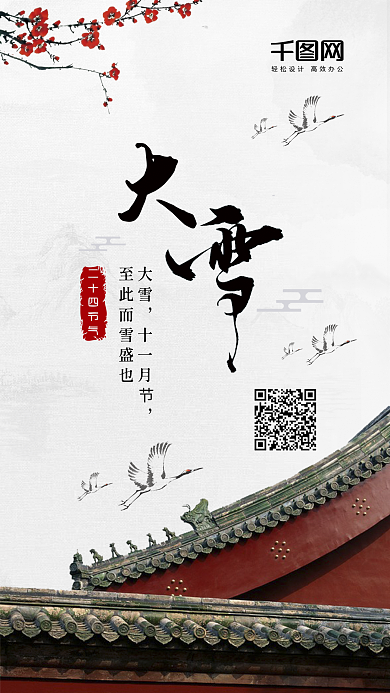 千图网
轻松设计 高效办公
大雪
二十四节气
大雪，十一月节，
至此而雪盛也